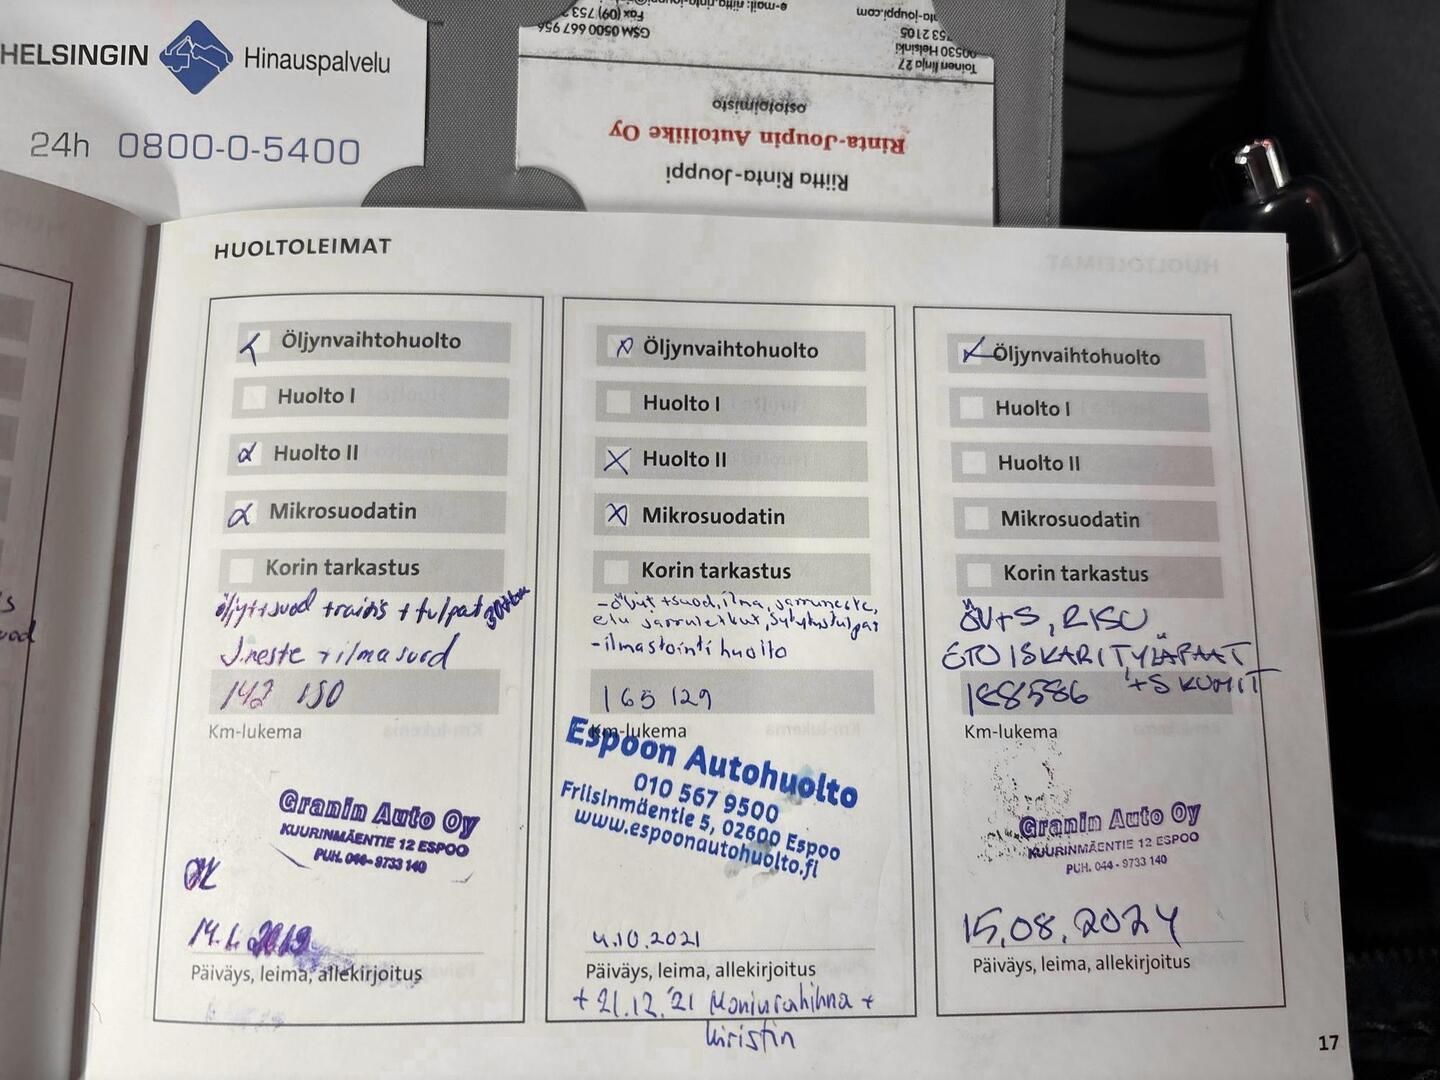 HELSINGIN Hinauspalvelu
24h 0800-0-5400
Riitta Rinta-Jouppi
Rinta-Joupin Autoliike Oy
ostotoimisto
Toinen linja 27
00530 Helsinki
753 2105
GSM 0500 667 956
Fax (09) 753
HUOLTOLEIMAT
Öljynvaihtohuolto
Huolto I
Huolto II
Mikrosuodatin
Korin tarkastus
öljyt+suod +raitis +tulpat
J.neste +ilmasuod
142 150
Km-lukema
Granin Auto Oy
KUURINMÄENTIE 12 ESPOO
PUH. 044-9733 140
14.1.2019
Päiväys, leima, allekirjoitus
Öljynvaihtohuolto
Huolto I
Huolto II
Mikrosuodatin
Korin tarkastus
-Öljyt +suod, ilma, jarruneste,
etu jarruletkut, sytytystulpat
-ilmastointi huolto
165 129
Km-lukema
Espoon Autohuolto
010 567 9500
Friisinmäentie 5, 02600 Espoo
www.espoonautohuolto.fi
4.10.2021
Päiväys, leima, allekirjoitus
+ 21.12.'21 Moniurahihna +
kiristin
Öljynvaihtohuolto
Huolto I
Huolto II
Mikrosuodatin
Korin tarkastus
ÖV+S, RISU
ETU ISKARIT, YLÄPÄÄT
188586 +S KUMIT
Km-lukema
Granin Auto Oy
KUURINMÄENTIE 12 ESPOO
PUH. 044-9733 140
15.08.2024
Päiväys, leima, allekirjoitus
17